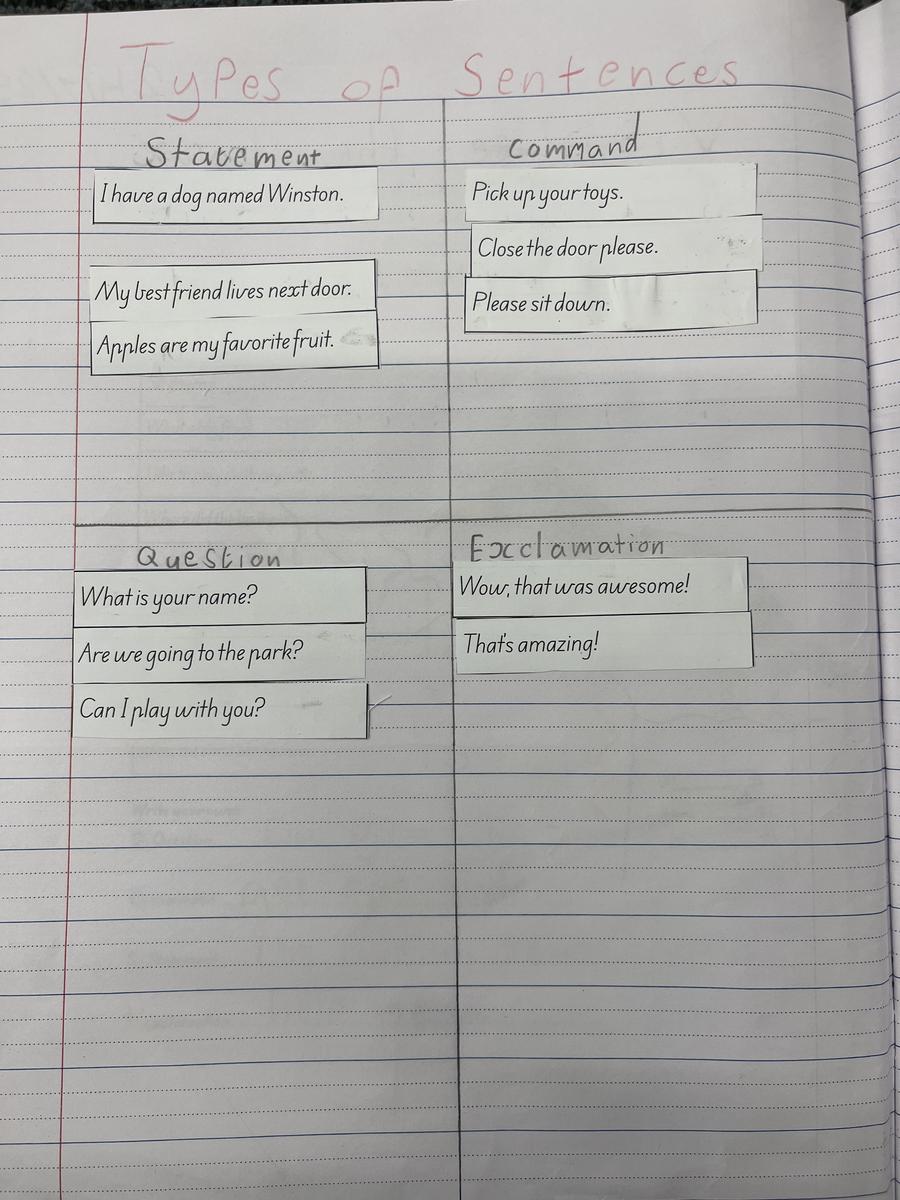 Types of Sentences
Statement
I have a dog named Winston.
My best friend lives next door.
Apples are my favorite fruit.
Command
Pick up your toys.
Close the door please.
Please sit down.
Question
What is your name?
Are we going to the park?
Can I play with you?
Exclamation
Wow, that was awesome!
That's amazing!